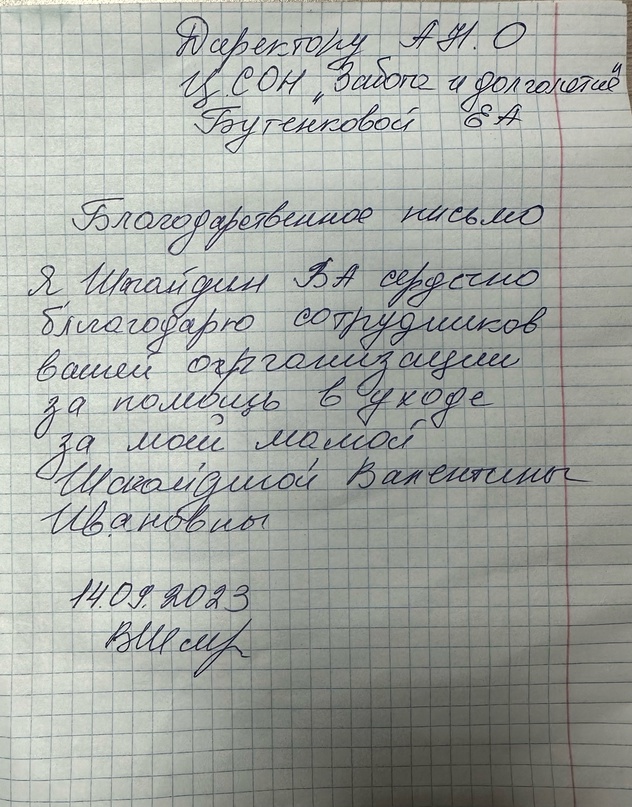 Директору А.Н.О
Ц.СОН "Забота и долголетие"
Бутенковой ЕА
Благодарственное письмо
Я Шкайдин ВА сердечно
благодарю сотрудников
вашей организации
за помощь в уходе
за моей мамой
Шкайдиной Валентины
Ивановны
14.09.2023